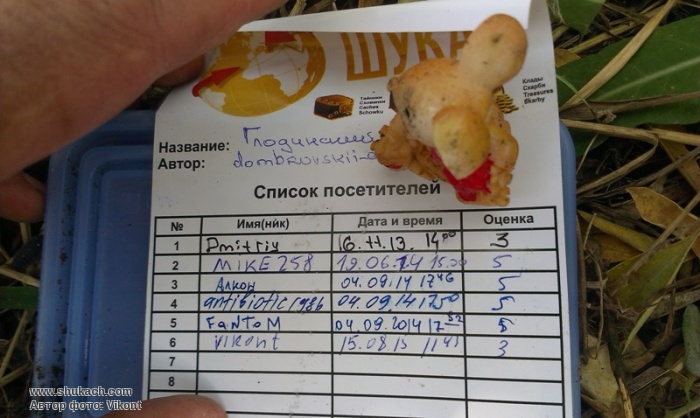 ШУКА
Тайники
Схованки
Caches
Schowku
Клады
Скарби
Treasures
Skarby
Название:
Автор: dombrovskii-
Список посетителей
№ Имя(ник) Дата и время Оценка
1 Dmitriy 16.11.13. 14 00 3
2 MIKE258 19.06.14 5
3 Алкон 04.09.14 1746 5
4 antibiotic1986 04.09.14 1750 5
5 FaNToM 04.09.2014 17 52 5
6 Vikont 15.08.15 1143 3
7
8
www.shukach.com
Автор фото: Vikont